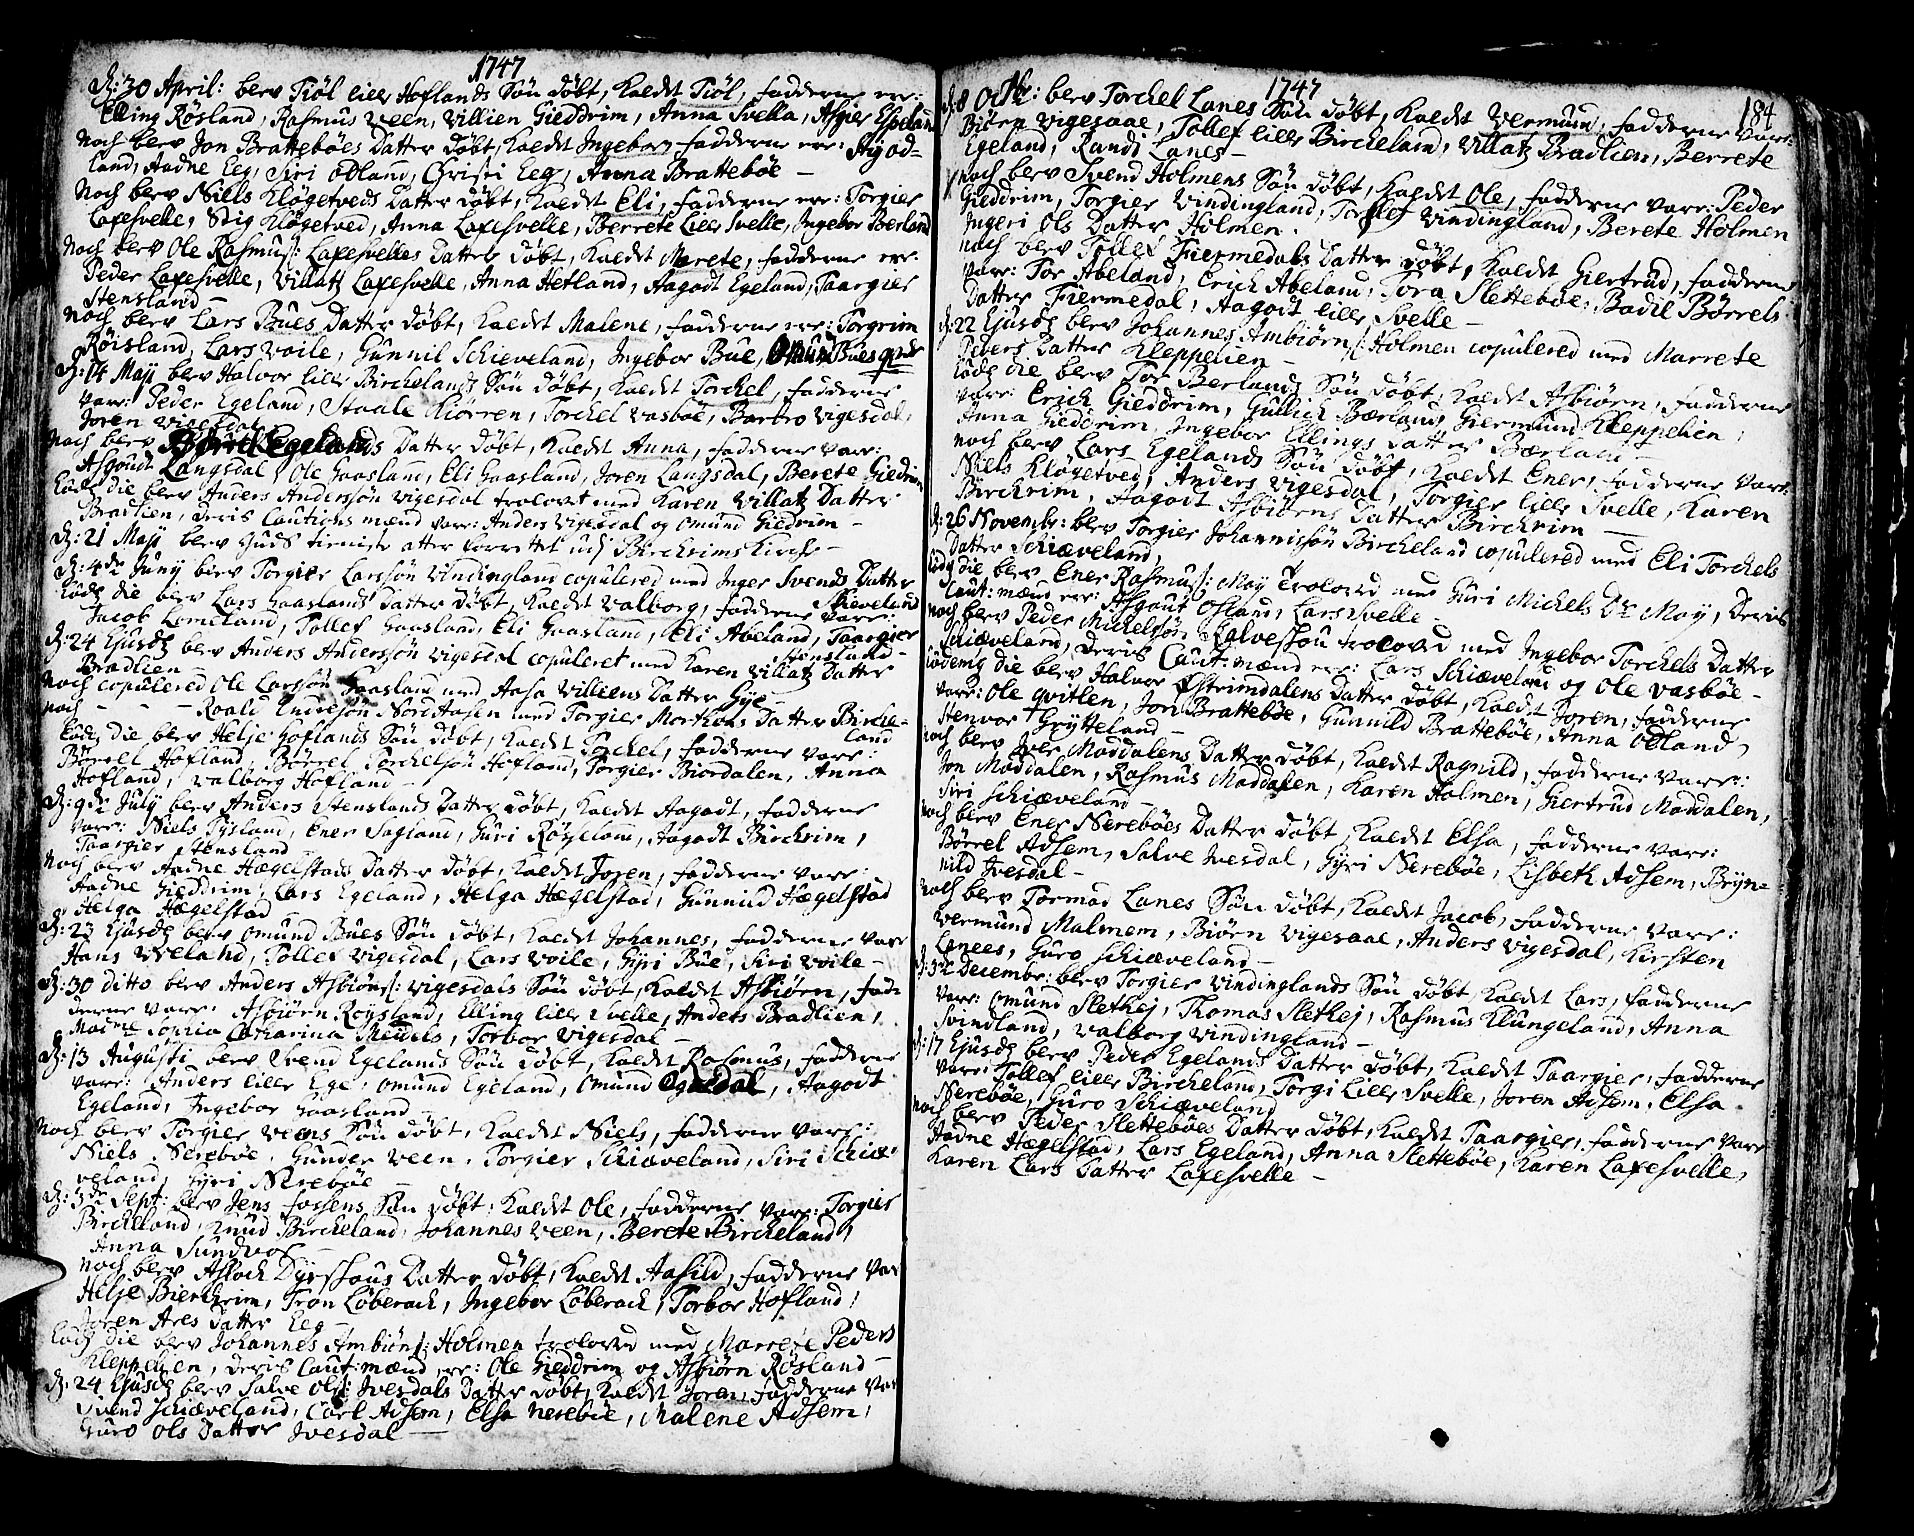 1747
D: 30 April: blev Tiøl lille Hoflands Søn døbt, kaldt Tiøl, fadderne ere:
Elling Røsland, Rasmus Veen, Villien Gieddrim, Anna Svella, Asgier Espeland
Noch blev Jon Brattebøes Datter døbt, kaldt Ingebor, fadderne ere: Agod-
land, Aadne Eeg, Siri Ødland, Christi Eeg, Anna Brattebøe —
Noch blev Niels Kløgetveds Datter døbt, kaldt Eli, fadderne ere: Torgier
Laxesvelle, Stig Kløgetved, Anna Laxesvelle, Berrete Lille Svelle, Ingebor Berland
Noch blev Ole Rasmus: Laxesvelles Datter døbt, kaldt Merete, fadderne ere
Peder Laxesvelle, Villatz Laxesvelle, Anna Hetland, Aagodt Egeland, Taargier
Stensland —
Noch blev Lars Bues Datter døbt, kaldt Malene, fadderne ere: Torgrim
Røisland, Lars Voile, Gunnil Schieveland, Ingebor Bue, Omund Bues
D: 14 Maji blev Halvor lille Birchelands Søn døbt, kaldt Torchel, fadderne
vare: Peder Egeland, Staale Kiørren, Torchel Vasbøe, Barbro Vigesdal,
Joren Vigesdal
Noch blev Egelands Datter døbt, kaldt Anna, fadderne vare:
Asgoudt Langsdal, Ole Gaasland, Eli Gaasland, Joren Langsdal, Berete Giedrim
Eod: die blev Anders Anderssøn Vigesdal trolovt med Karen Villatz Datter
Bradlien, deris Cautions mænd vare: Anders Vigesdal og Omund Giedrim —
D: 21 Maji blev Guds tieniste atter forrettet udj Birchrims Kirche —
D: 4de Junij blev Torgier Larssøn Vindingland copulered med Inger Svends Datter
Schieveland
Eod: die blev Lars Gaaslands Datter døbt, kaldt Valborg, fadderne vare:
Jacob Lomeland, Tollef Gaasland, Eli Gaasland, Eli Abeland, Taargier
Stensland —
D: 24 Ejusd: blev Anders Anderssøn Vigesdal copuleret med Karen Villatz Datter
Bradlien —
Noch copulered Ole Larssøn Gaasland med Aasa Villiens Datter Gye —
noch — — — Roald Endresøn Nordaasen med Torgier Mortens Datter Birche-
land
Eod: die blev Helje Hoflands Søn døbt, kaldt Torchel, fadderne vare:
Børrel Hofland, Børrel Torchelsøn Hofland, Torgier Biordalen, Anna
Hofland, Valborg Hofland —
D: 9de July blev Anders Stenslands Datter døbt, kaldt Aagodt, fadderne
vare: Niels Tysland, Ener Sagland, Guri Røyseland, Aagodt Birchrim,
Taargier Stensland
Noch blev Aadne Hægelstads Datter døbt, kaldt Joren, fadderne vare:
Aadne Gieddrim, Lars Egeland, Helga Hægelstad, Gunnild Hægelstad
Helga Hægelstad
D: 23 Ejusd: blev Omund Bues Søn døbt, kaldt Johannes, fadderne vare
Hans Veland, Tollef Vigesdal, Lars Voile, Gyri Bue, Siri Voile —
D: 30 ditto blev Anders Asbiøns: Vigesdals Søn døbt, kaldt Asbiørn, fad-
derne vare: Asbiørn Røysland, Elling lille Svelle, Anders Bradlien,
Catharina Meidels, Torbor Vigesdal —
D: 13 Augusti blev Svend Egelands Søn døbt, kaldt Rasmus, fadderne
vare: Anders lille Ege, Omund Egeland, Omund Ogredal, Aagodt
Egeland, Ingebor Gaasland —
Noch blev Torgier Veens Søn døbt, kaldt Niels, fadderne vare:
Niels Nerebøe, Gunder Veen, Torgier Schiæveland, Siri Schiæ-
veland, Gyri Nerebøe —
D: 3de Sept: blev Jens Fossens Søn døbt, kaldt Ole, fadderne vare: Torgier
Bircheland, Knud Bircheland, Johannes Veen, Berete Bircheland,
Anna Sundvor —
Noch blev Aslach Dyrshous Datter døbt, kaldt Aasild, fadderne var
Helje Bierchrim, Tron Løberach, Ingebor Løberach, Torbor Hofland,
Joren Ares Datter Eeg —
Eod: die blev Johannes Ambiøns: Holmen trolovd med Marrete Peders
Kleppelien, deris Caut: mænd ere: Ole Gieddrim og Asbiørn Røsland —
D: 24 Ejusd: blev Salve Ols: Ivesdals Datter døbt, kaldt Joren, fadderne var
Svend Schiæveland, Carl Adsem, Elsa Nerebøe, Malene Adsem,
Guro Ols Datter Ivesdal —
1747
184
D: 8 Octbr: blev Torchel Lanes Søn døbt, kaldt Vermund, fadderne vare:
Biørn Vigesaae, Tollef lille Bircheland, Villatz Bradlien, Berrete
Egeland, Randi Lanes —
Noch blev Svend Holmens Søn døbt, kaldt Ole, fadderne vare: Peder
Gieddrim, Torgier Vindingland, Tollef Vindingland, Berete Holmen
Ingeri Ols Datter Holmen.
Noch blev Tollef Fiermedals Datter døbt, kaldt Giertrud, fadderne
vare: Tor Abeland, Erich Abeland, Tora Slettebøe, Badil Børrels
Datter Fiermedal, Aagodt lille Svelle —
D: 22 Ejusd: blev Johannes Ambiørns: Holmen copulered med Marrete
Peders Datter Kleppelien —
Eod: die blev Tor Berlands Søn døbt, kaldt Asbiørn, fadderne
vare: Erich Gieddrim, Gullich Bærland, Giermund Kleppelien,
Anna Gieddrim, Ingebor Ellings Datter Bærland —
Noch blev Lars Egelands Søn døbt, kaldt Ener, fadderne vare:
Niels Kløgetved, Anders Vigesdal, Torgier lille Svelle, Karen
Birchrim, Aagodt Asbiørns Datter Birchrim —
D: 26 Novembr: blev Torgier Johannissøn Bircheland copulered med Eli Torchels
Datter Schiæveland,
Eod: die blev Ener Rasmus: Moy trolovd med Guri Michels Dr Moy, deris
Caut: mænd ere: Asgout Osland, Lars Svelle —
Noch blev Peder Michelssøn Salvessou trolovd med Ingebor Torchels Datter
Schiæveland, deris Caut: mænd ere: Lars Schiæveland og Ole Vasbøe —
Eodemq die blev Halvor Østrimdalens Datter døbt, kaldt Joren, fadderne
vare: Ole Qvitlen, Jon Brattebøe, Gunnild Brattebøe, Anna Ødland,
Stenvor Grytteland —
Noch blev Iver Maddalens Datter døbt, kaldt Ragnild, fadderne vare:
Jon Maddalen, Rasmus Maddalen, Karen Holmen, Giertrud Maddalen,
Siri Schiæveland —
Noch blev Ener Nerebøes Datter døbt, kaldt Elsa, fadderne vare:
Børrel Adsem, Salve Ivesdal, Gyri Nerebøe, Lisbeth Adsem, Bryn-
nild Ivesdal —
Noch blev Tormod Lanes Søn døbt, kaldt Jacob, fadderne vare:
Vermund Malmem, Biørn Vigesaae, Anders Vigesdal, Kirsten
Lanees, Guro Schiæveland —
D: 3de Decembr: blev Torgier Vindinglands Søn døbt, kaldt Lars, fadderne
vare: Omund Slethej, Thomas Slethej, Rasmus Klungeland, Anna
Svindland, Valborg Vindingland —
D: 17 Ejusd: blev Peder Egelands Datter døbt, kaldt Taargier, fadderne
vare: Tollef lille Bircheland, Torgi Lille Svelle, Joren Adsem, Elsa
Nerebøe, Guro Schiæveland
Noch blev Peder Slettebøes Datter døbt, kaldt Taargier, fadderne vare
Aadne Hægelstad, Lars Egeland, Anna Slettebøe, Karen Laxesvelle,
Karen Lars Datter Laxesvelle —